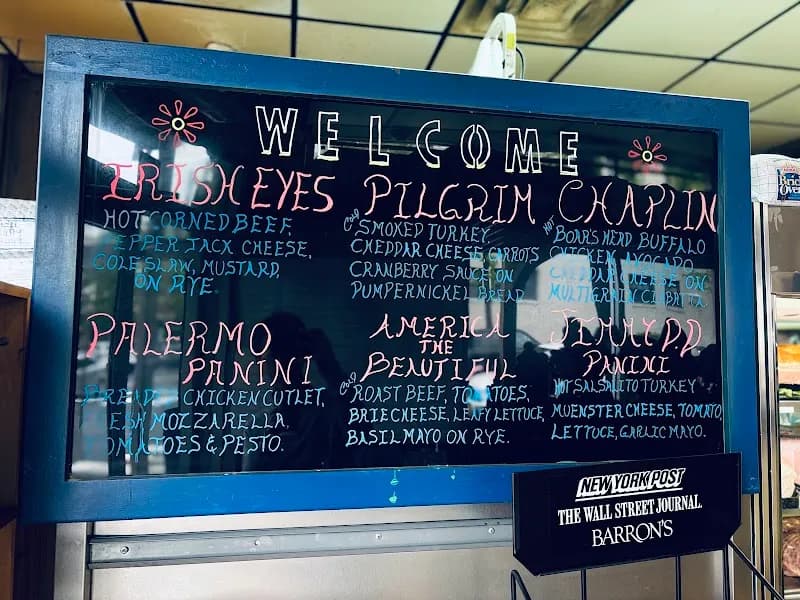 WELCOME
IRISH EYES
HOT CORNED BEEF,
PEPPER JACK CHEESE,
COLESLAW, MUSTARD,
ON RYE.
PILGRIM
COLD SMOKED TURKEY,
CHEDDAR CHEESE, CARROTS
CRANBERRY SAUCE ON
PUMPERNICKEL BREAD
CHAPLIN
HOT BOAR'S HEAD BUFFALO
CHICKEN, AVOCADO,
CHEDDAR CHEESE ON
MULTIGRAIN CIABATTA
PALERMO
PANINI
BREADED CHICKEN CUTLET,
FRESH MOZZARELLA,
TOMATOES & PESTO.
AMERICA
THE
BEAUTIFUL
COLD ROAST BEEF, TOMATOES,
BRIE CHEESE, LEAFY LETTUCE,
BASIL MAYO ON RYE.
JIMMY DD
PANINI
HOT SALSALITO TURKEY
MUENSTER CHEESE, TOMATO,
LETTUCE, GARLIC MAYO.
NEW YORK POST
THE WALL STREET JOURNAL.
BARRON'S